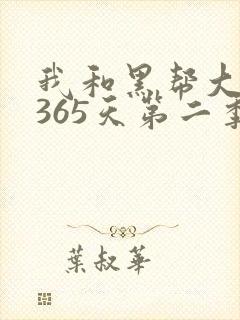 我和黑帮大
365天第二季
葉叔華